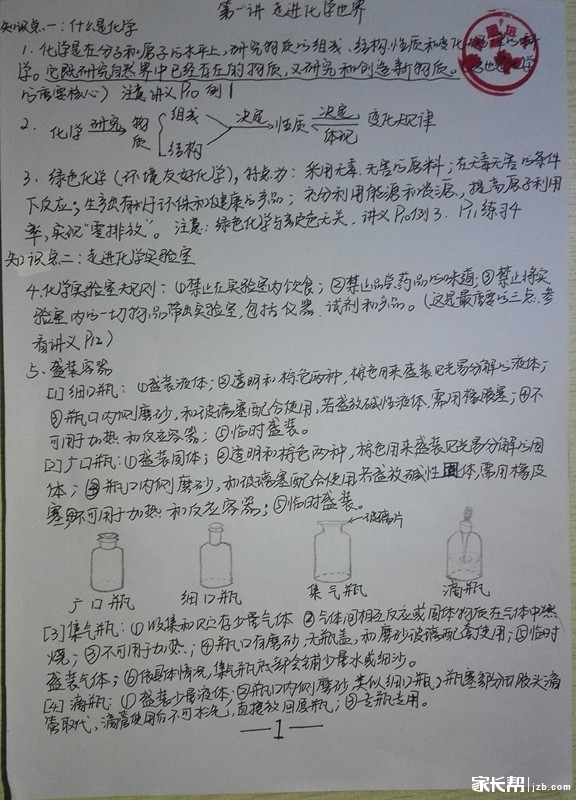 第一讲 走进化学世界
知识点一：什么是化学
1. 化学是在分子和原子的水平上，研究物质的组成、结构、性质和变化规律的科
学。它既研究自然界中已经存在的物质，又研究和创造新物质。(这也是化学
的重要核心) 注意讲义P10 例1
2. 化学 研究 物质 组成 结构 决定 性质 决定 体现 变化规律
3. 绿色化学(环境友好化学)，特点为：采用无毒、无害的原料；在无毒无害的条件
下反应；生产出有利于环保和健康的产品；充分利用能源和资源，提高原子利用
率，实现“零排放”。注意：绿色化学与颜色无关，讲义P10例3、P11练习4
知识点二：走进化学实验室
4.化学实验室规则：①禁止在实验室内饮食；②禁止品尝药品的味道；③禁止将实
验室内的一切物品带出实验室，包括仪器、试剂和产品。(这是最重要的三点，参
看讲义P12)
5. 盛装容器
[1]细口瓶：①盛装液体；②透明和棕色两种，棕色用来盛装见光易分解的液体；
③瓶口内侧磨砂，和玻璃塞配合使用，若盛放碱性液体，需用橡胶塞；④不
可用于加热和反应容器；⑤临时盛装。
[2]广口瓶：①盛装固体；②透明和棕色两种，棕色用来盛装见光易分解的固
体；③瓶口内侧磨砂，和玻璃塞配合使用若盛放碱性固体，需用橡皮
塞；④不可用于加热和反应容器；⑤临时盛装。
玻璃片
广口瓶 细口瓶 集气瓶 滴瓶
[3]集气瓶：①收集和贮存少量气体 ②气体间相互反应或固体物质在气体中燃
烧；③不可用于加热；④瓶口有磨砂，无瓶盖，和磨砂玻璃配套使用；⑤临时
盛装气体；⑥依具体情况，集气瓶底部会铺少量水或细沙。
[4]滴瓶：①盛装少量液体；②瓶口内侧磨砂，类似细口瓶，瓶塞部分用胶头滴
管取代，滴管使用后不可水洗，直接放回原瓶；③专瓶专用。
—1—
家长帮 jzb.com